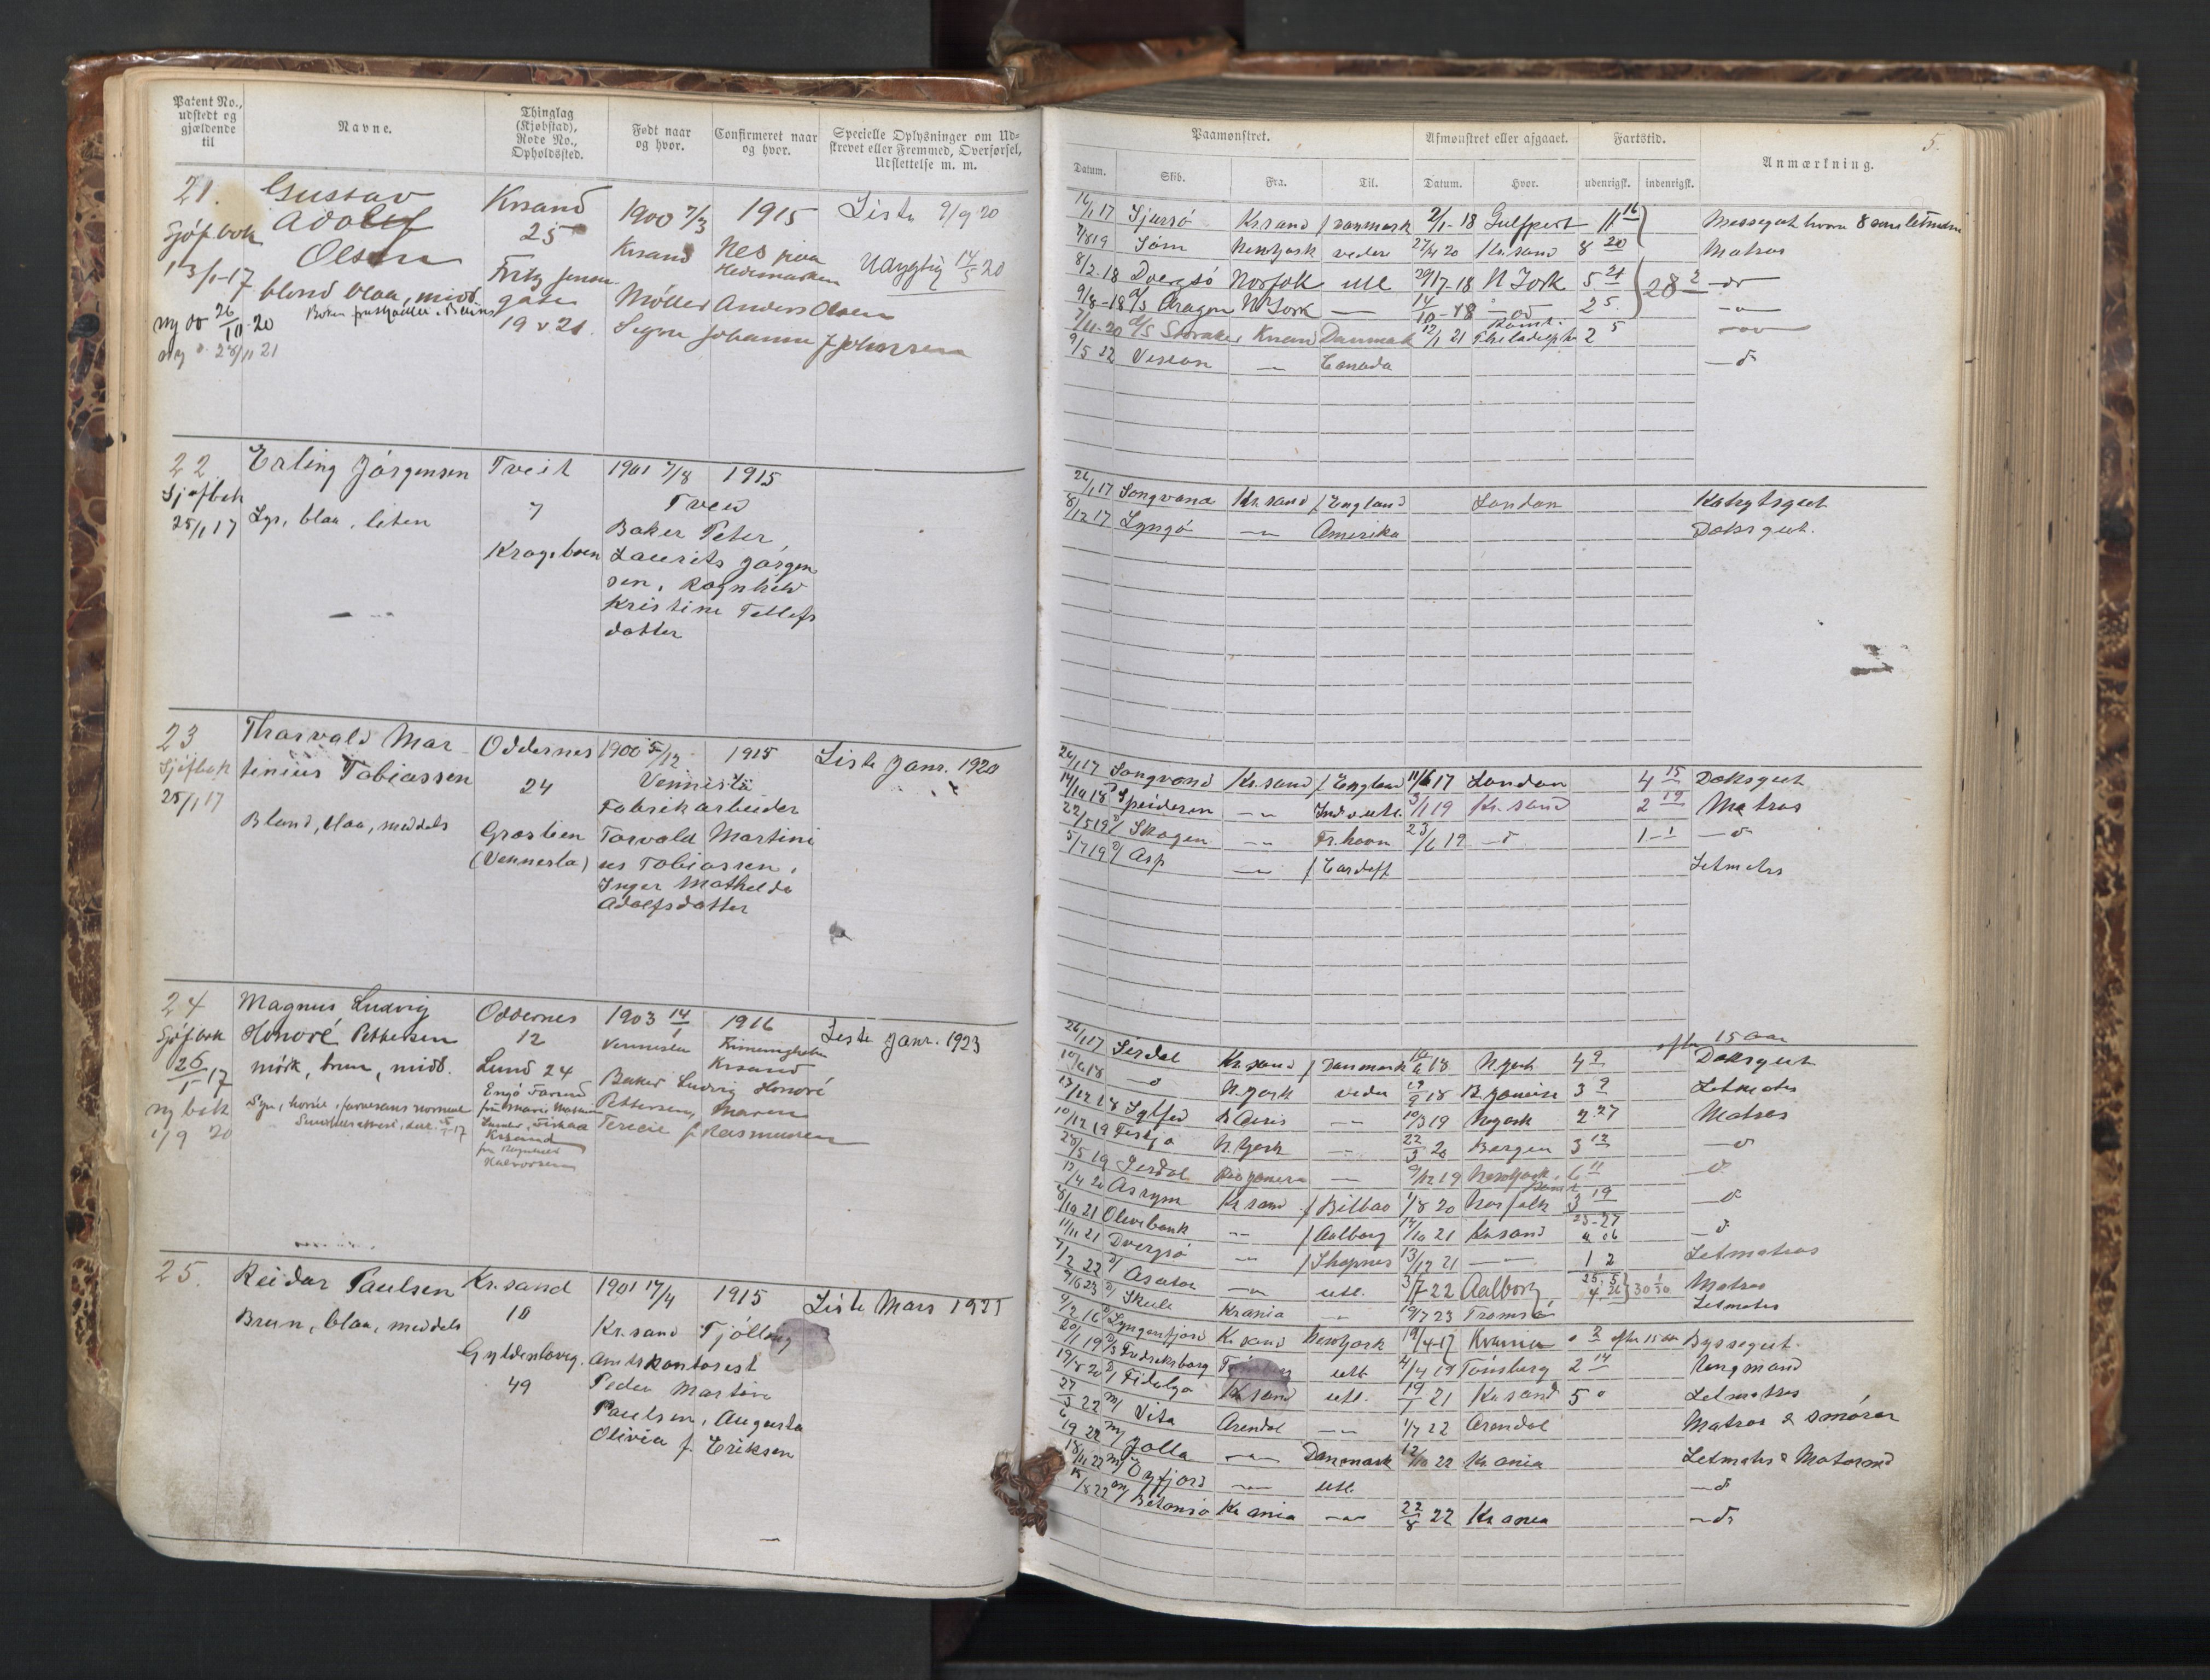 Patent No.,
udstedt og
gjældende
til
Navne.
Thinglag
(Kjøbstad),
Rode No.,
Opholdssted.
Født naar
og hvor.
Confirmeret naar
og hvor.
Specielle Oplysninger om Ud-
skrevet eller Fremmed, Overførsel,
Udslettelse m. m.
21.
Sjöf.bok
13/1-17
ny do 26/10-20
ny d. 28/11 21
Gustav
Adolf
Olsen
blond blaa, midd.
Krsand
25
Fritz Jensen
gate
19 v 21.
1900 7/3
Krsand
1915
Nes paa
Hedemarken
Möller Anders Olsen
Signe Johanne f Johnsen
Liste 9/9 20
Udygtig 14/5 20
22
Sjøfbok
25/1 17
Erling Jörgensen
Lys, blaa, liten
Tveit
7
Krageboen
1901 7/8 1915
Tveid
Baker Peter
Laurits Jörgen
sen, Ragnhild
Kristine Tellefs
datter
23
Sjöfbok
25/1 17
Thorvald Mar
tinius Tobiassen
Blond, blaa, middels
Oddernes
24
Graslien
(Vennesla)
1900 5/12 1915
Vennesla
Fabrikarbeider
Torvald Martini
us Tobiassen,
Inger Mathilde
Adolfsdatter
Liste Janr. 1920
24
Sjöfbok
26/1 17
ny bok
1/9 20
Magnus Ludvig
Honoré Pettersen
mörk, brun, midd.
Oddernes
12
Lund 24
Krsand
Halvorsen
1903 14/1
Vennesla
1916
Krsand
Baker Ludvig Honoré
Pettersen, Maren
Terecie f. Rasmussen
Liste Janr. 1923
25.
Reidar Paulsen
Brun, blaa, middels
Kr.sand
10
Gyldenloveg.
49
1901 17/4 1915
Kr.sand Tjölling
Amtskontorist
Peder Martin
Paulsen, Augusta
Olivia f. Eriksen
Liste Mars 1921
5.
Paamønstret.
Afmønstret eller afgaaet.
Fartstid.
Anmærkning.
Datum. Skib. Fra. Til. Datum. Hvor. udenrigsk. indenrigsk.
16/1 17 Sjursö Kr.sand / Danmark 2/1-18 Gulfport 11 16
7/8 19 Sörn Newyork videre 27/4 20 Kr.sand 8 20 Matros
8/2-18 Dvergsö Norfolk utl 29/7-18 N York 5 21 28 2 -do
9/8-18 d/s Aragon N York — 14/10-18 -do 2 5.
7/11-20 d/s Storaker Krsand Danmark 12/1 21 Philadelphia 2 5
9/5 22 Vestan -„- Canada -d
26/1 17 Songvand Kr.sand / England London
8/12 17 Lyngö -„- Amerika Doksgut.
26/1 17 Songvand Kr.sand / England 11/6 17 London 4 15 Doksgut
14/10 18 d/ Speideren -„- Ind. utl. 3/1 19 Kr.sand 2 19 Matros
22/5 19 d/ Skogen -„- Fr.havn 23/6 19 -d 1-1 -d
5/7 19 d/ Asp -„- / Cardiff Letmatrs
efter 15 aar
26/1 17 Sirdal Kr.sand / Danmark 18 N.york 4 9 Doksgut
10/6 18 -d N.york videre 19/9 18 B.Janeiro 3 9 Letmatrs
13/12 18 Sylfid B.Aires -„- 10/3 19 Nyork 2 27 Matros
10/12 19 Fistjo N.York -„- 22/3 20 Bergen 3 12 -d
28/5 19 Sirdal Rio Janeiro -„- 9/12 19 Newyork. 6 11 -d
12/4 20 Asrym Kr.sand / Bilbao 1/8 20 Norfolk 3 19 -d
8/10 21 Olivebank -„- / Aalborg 14/10 21 Kr.sand -d
11/11 21 Dvergsö -„- / Skopnes 13/12 21 -„- 1 2 Letmatros
7/2 22 d/ Asator -„- utl. 3/7 22 Aalborg Matros
9/6 23 d/ Skule Krania -„- 19/7 23 Tromsö Letmatrs
9/2 16 d/ Lyngenfjord Kr.sand Newyork 19/4-17 Krania efter 15 aar Byssegut.
20/1 19 d/s Fredriksborg utl. 4/4 19 Tönsberg 2 14 Ungmand
19/8 20 d/ Fidelga Kr.sand utl. 19/1 21 Kr.sand 5 0 Letmatros
27/3 22 m/ Vita Arendal -„- 1/7 22 Arendal Matros & smörer
6/9 22 m/ Jolla -„- Danmark 12/10 22 Kr.ania Letmatrs & Motormd
18/11 22 m/ Öyfjord -„- utl. -d
15/8 22 m/ Betonia Kr.ania -„- 22/8 22 Kr.ania -d